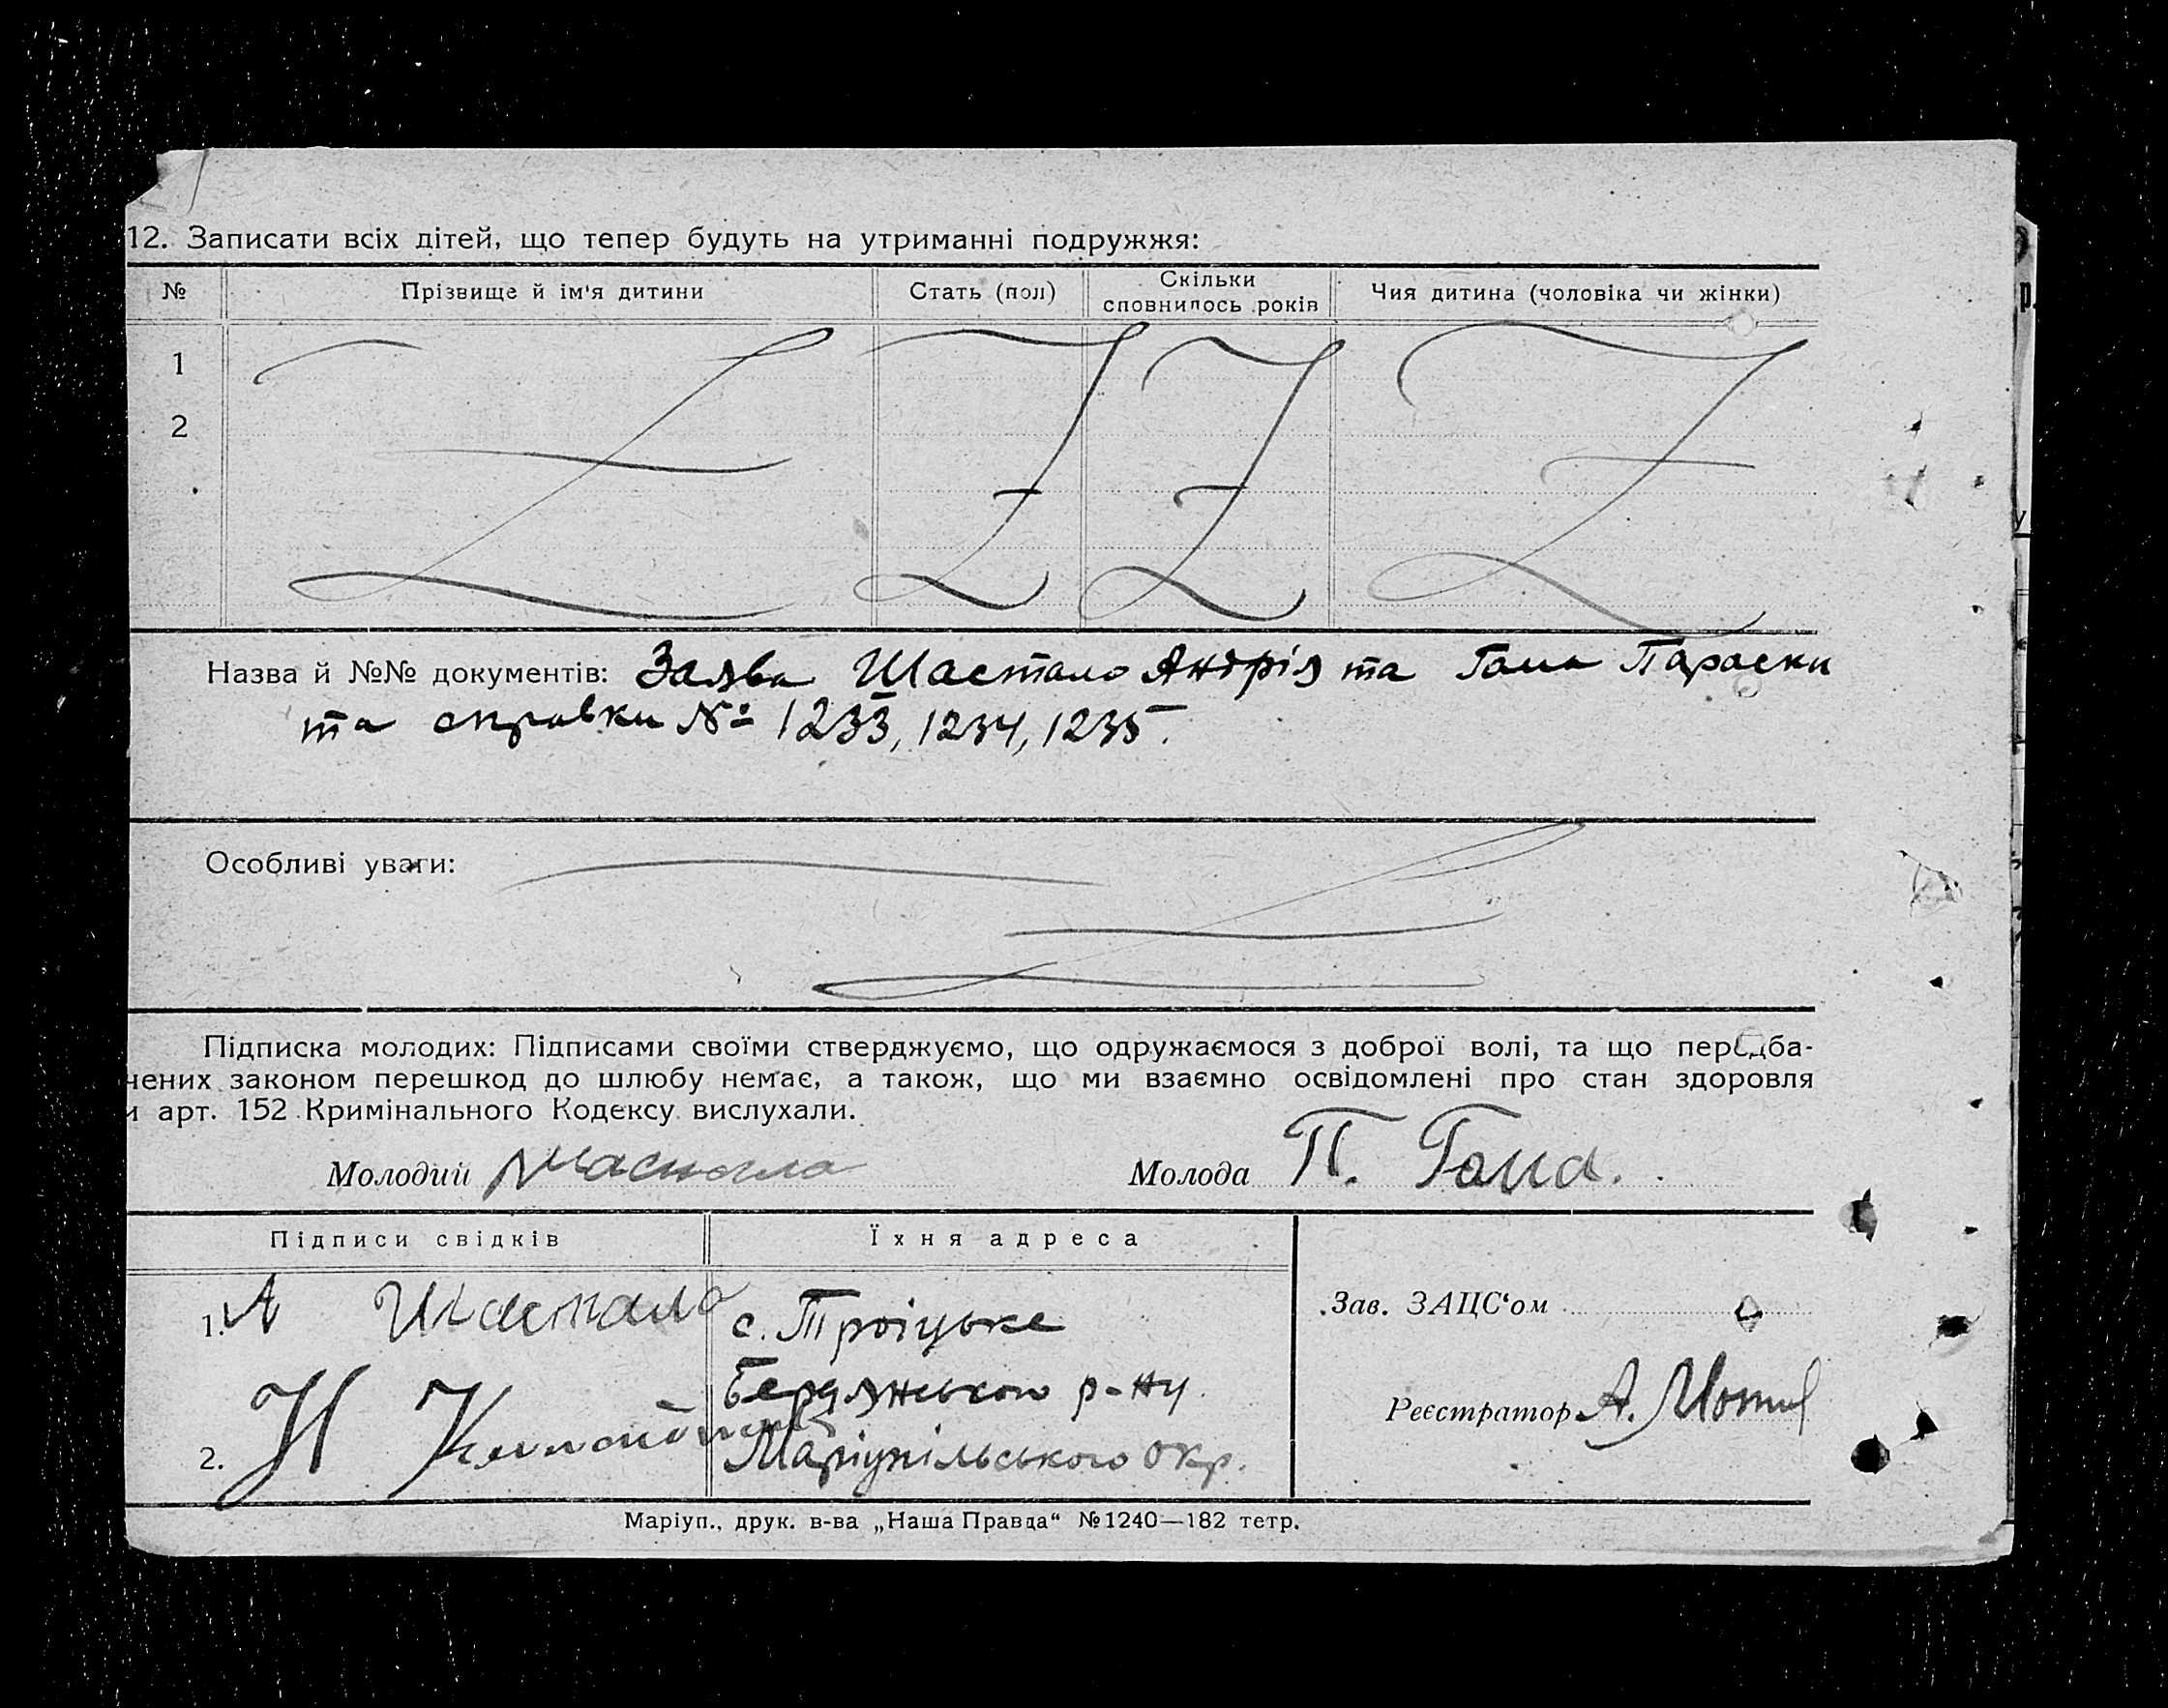 12. Записати всіх дітей, що тепер будуть на утриманні подружжя:
№ Прізвище й ім'я дитини Стать (пол) Скільки сповнилось років Чия дитина (чоловіка чи жінки)
1
2
Назва й №№ документів: Заява Шастало Андрія та Гома Параски
та справки № 1233, 1234, 1235.
Особливі уваги:
Підписка молодих: Підписами своїми стверджуємо, що одружаємося з доброї волі, та що передба-
чених законом перешкод до шлюбу немає, а також, що ми взаємно освідомлені про стан здоровля
и арт. 152 Кримінального Кодексу вислухали.
Молодий Шастало Молода П. Гома.
Підписи свідків Їхня адреса
1. А Шастало с. Троіцьке
Зав. ЗАЦС‘ом
Бердянського р-ну.
Реєстратор А.
2. Н Маріупільського окр.
Маріуп., друк. в-ва „Наша Правда“ №1240—182 тетр.